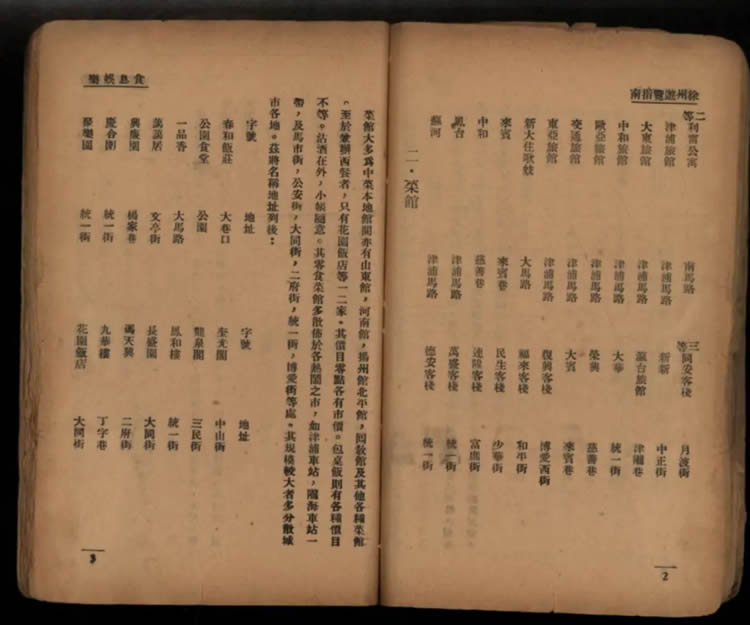 徐州遊覽指南
二等 利富公寓 南馬路 三等 同安客棧 月波街
津浦旅館 津浦馬路 新新 中正街
大東旅館 津浦馬路 瀛台旅館 津浦巷
中和旅館 津浦馬路 大華 統一街
歐亞旅館 津浦馬路 榮興 慈善巷
交通旅館 津浦馬路 大賓 來賓巷
東亞旅館 津浦馬路 復興客棧 博愛西街
新大住歌妓 大馬路 福來客棧 和平街
來賓 來賓巷 民生客棧 少華街
中和 慈善巷 連陞客棧 富庶街
鳳台 津浦馬路 萬盛客棧 統一街
蘇河 津浦馬路 德安客棧 統一街
二・菜館
2
食息娛樂
菜館大多爲中菜本地館間亦有山東館,河南館,揚州館北平館,回敎館及其他各種菜館
。至於兼辦西餐者,只有花園飯店等一二家。其價目零點各有市價。包桌飯則有各種價目
不等。沽酒在外,小帳隨意。其零食菜館多散佈於各熱鬧之市,如津浦車站,隴海車站一
帶,及馬市街,公安街,大同街,二府街,統一街,博愛街等處。其規模較大者多分散城
市各地。茲將名稱地址列後:
字號 地址 字號 地址
春和飯莊 大巷口 奎光閣 中山街
公園食堂 公園 龍泉閣 三民街
一品香 大馬路 鳳和樓 統一街
萬萬居 文亭街 長盛園 大同街
興慶園 楊家巷 馮天興 二府街
慶合園 統一街 九華樓 丁字巷
聚樂園 統一街 花園飯店 大同街
3